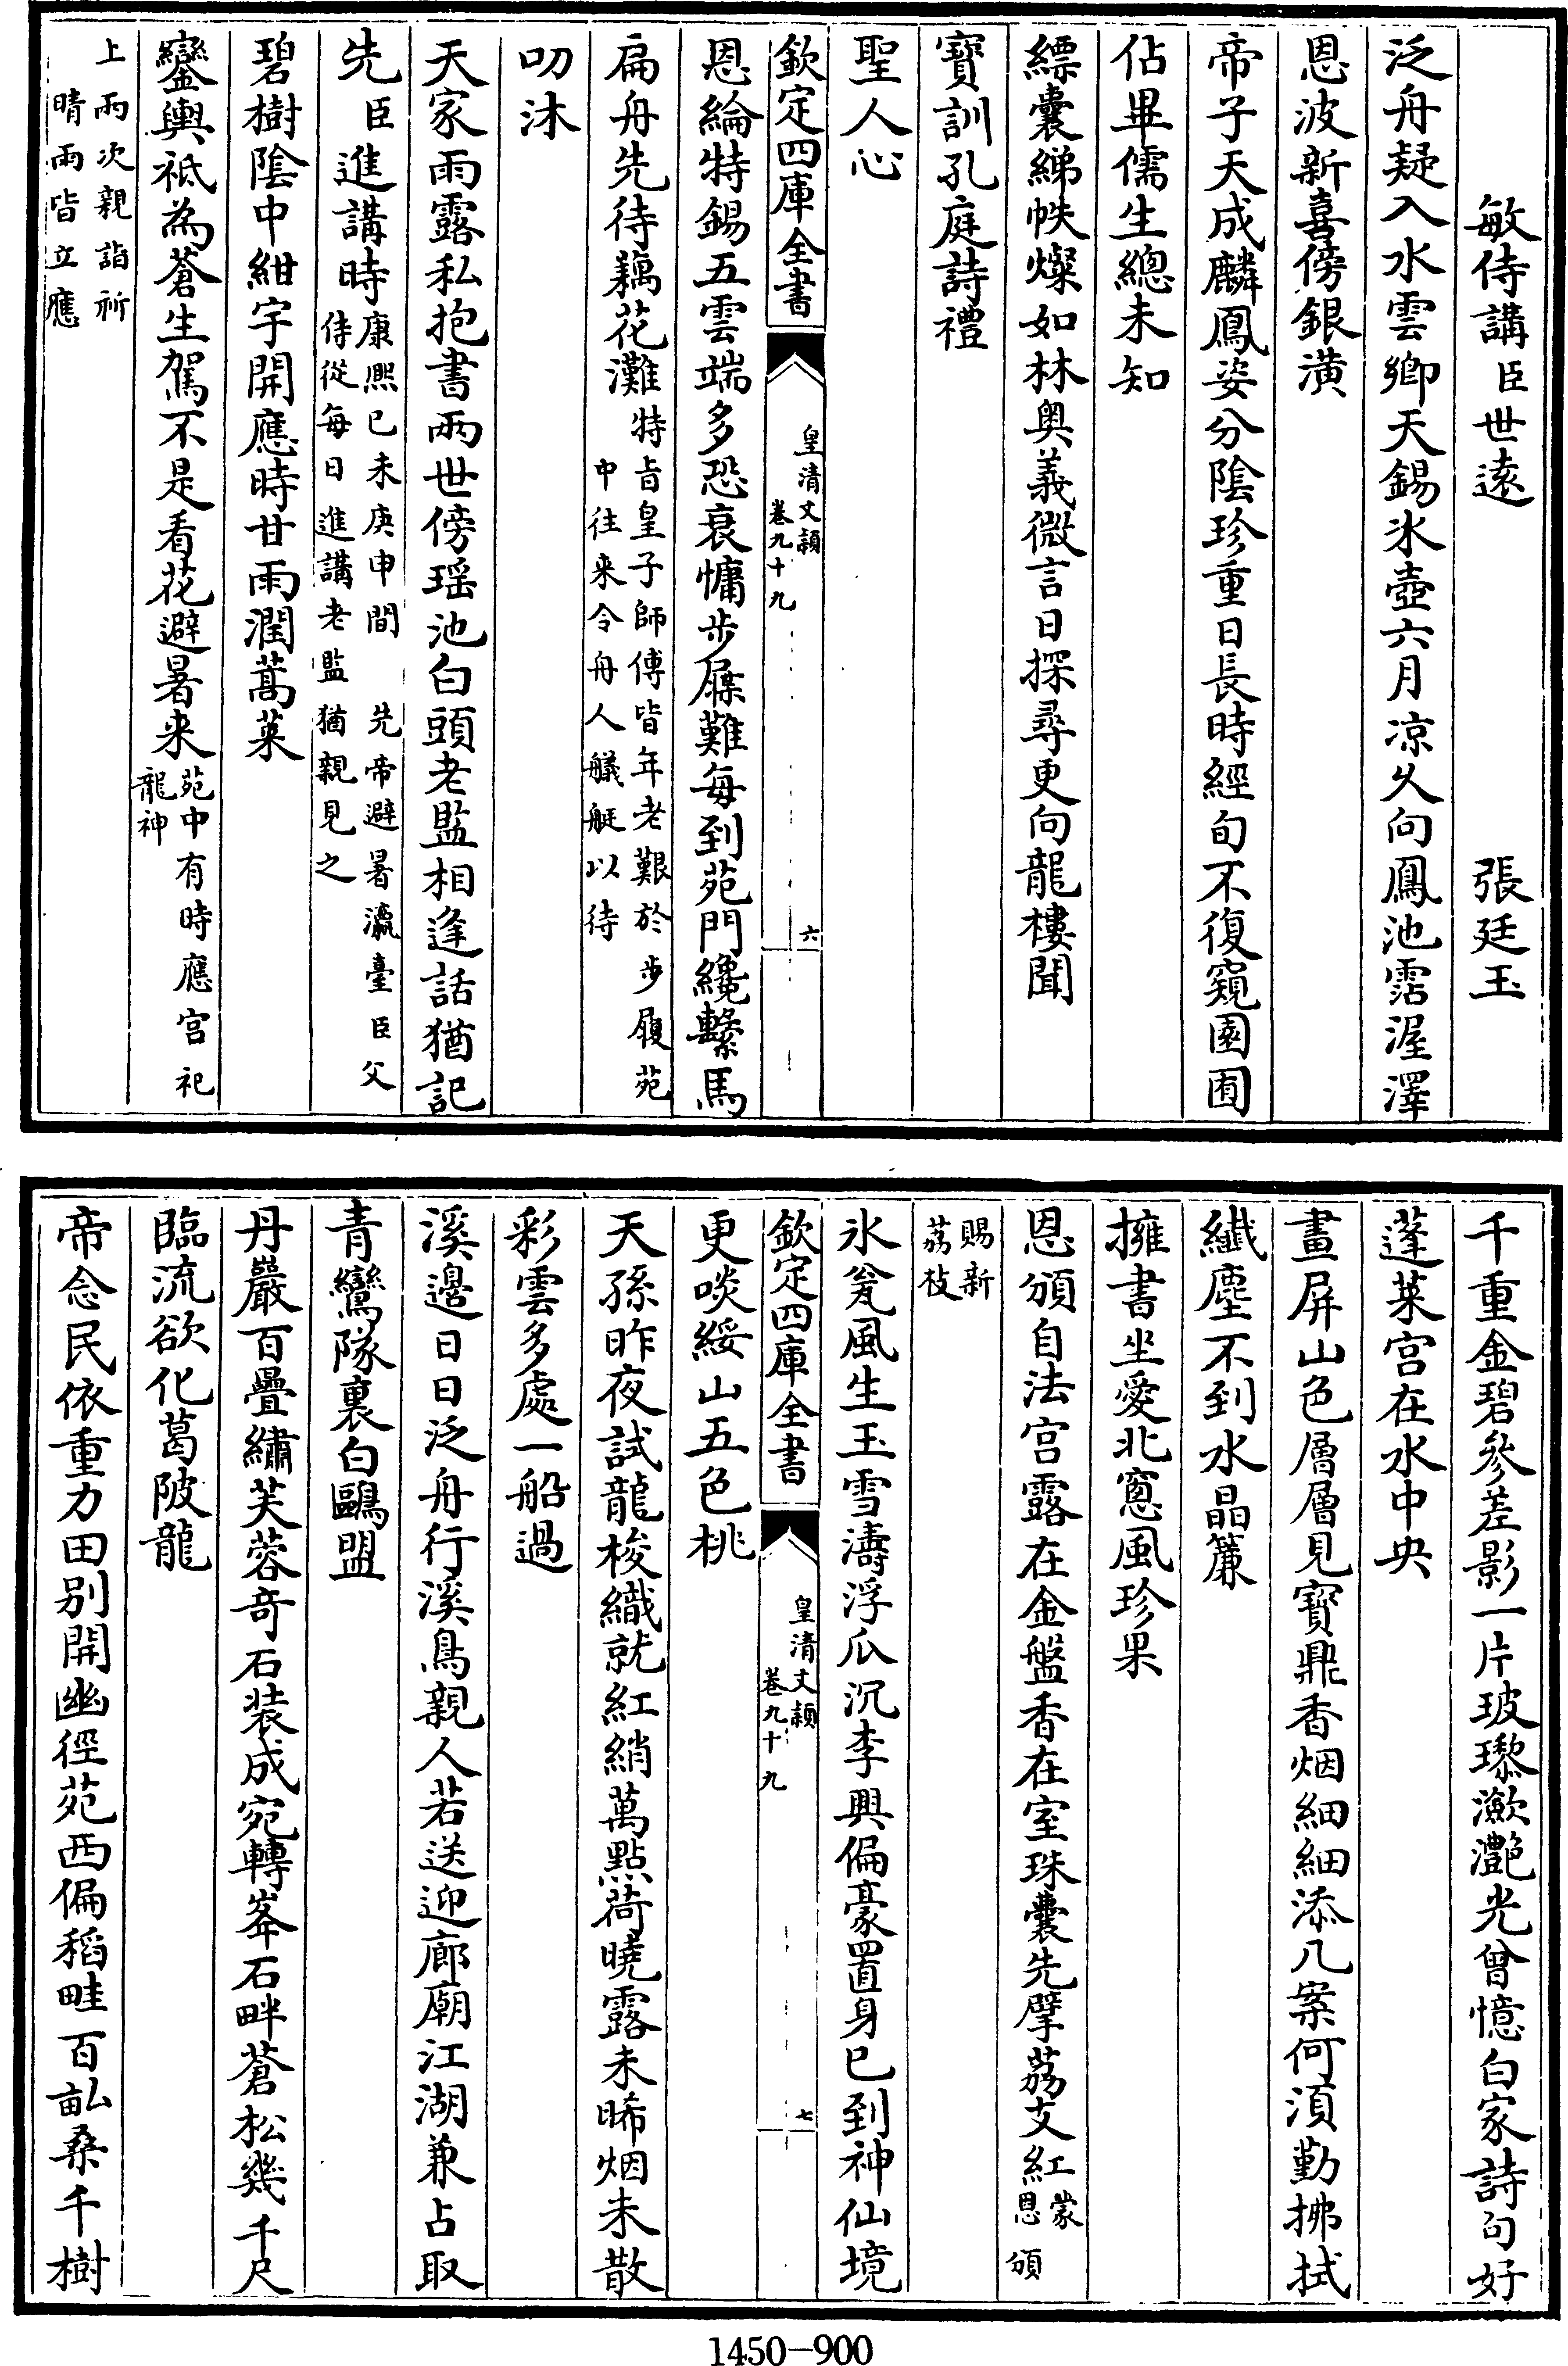 敏侍講臣世遠　張廷玉
泛舟疑入水雲鄉天錫氷壺六月凉久向鳳池霑渥澤
恩波新喜傍銀潢
帝子天成麟鳳姿分陰珍重日長時經旬不復窺園囿
佔畢儒生總未知
縹囊綈帙燦如林奥義微言日探尋更向龍樓聞
寶訓孔庭詩禮
聖人心
欽定四庫全書
皇清文穎
卷九十九
六
恩綸特錫五雲端多恐衰慵步屧難每到苑門纔繫馬
扁舟先待藕花灘特旨皇子師傅皆年老艱於步履苑
中往来令舟人艤艇以待
叨沐
天家雨露私抱書兩世傍瑶池白頭老監相逢話猶記
先臣進講時康熙己未庚申間　先帝避暑瀛臺臣父
侍從每日進講老監猶親見之
碧樹陰中紺宇開應時甘雨潤蒿萊
鑾輿祗為蒼生駕不是看花避暑来苑中有時應宫祀
龍神
上兩次親詣祈
晴雨皆立應
千重金碧參差影一片玻瓈瀲灩光曾憶白家詩句好
蓬萊宫在水中央
畫屏山色層層見寶鼎香烟細細添几案何須勤拂拭
纖塵不到水晶簾
擁書坐愛北窓風珍果
恩頒自法宫露在金盤香在室珠囊先擘荔支紅蒙
恩頒
賜新
荔枝
氷瓮風生玉雪濤浮瓜沉李興偏豪置身已到神仙境
欽定四庫全書
皇清文穎
卷九十九
七
更啖綏山五色桃
天孫昨夜試龍梭織就紅綃萬點荷曉露未晞烟未散
彩雲多處一船過
溪邊日日泛舟行溪鳥親人若送迎廊廟江湖兼占取
青鸞隊裏白鷗盟
丹巖百疊繡芙蓉奇石装成宛轉峯石畔蒼松幾千尺
臨流欲化葛陂龍
帝念民依重力田别開幽徑苑西偏稻畦百畝桑千樹
1450-900